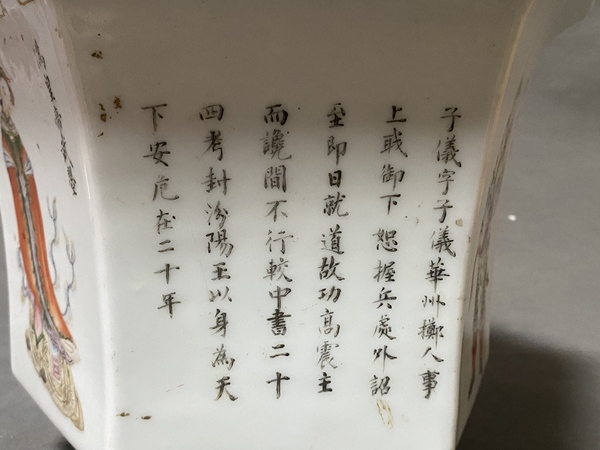 子儀字子儀華州擲人事
上戝御下恕握兵處外詔
至即日就道故功高震主
而讒間不行較中書二十
四考封汾陽王以身為天
下安危在二十年